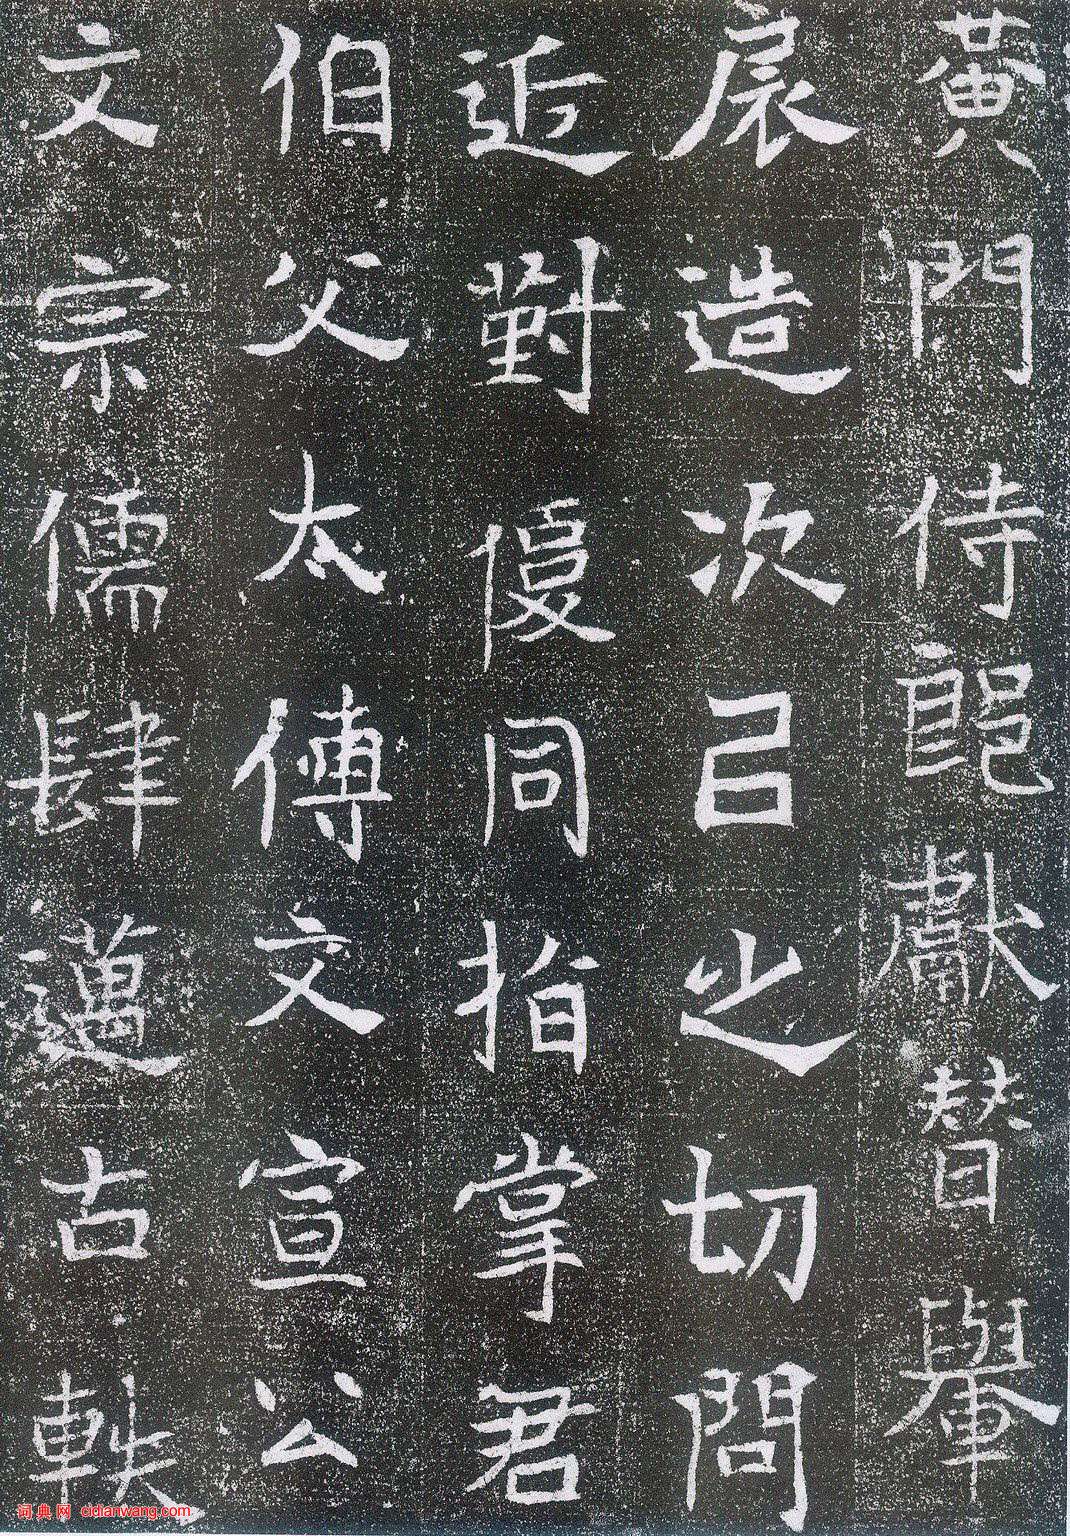 黃門侍郎獻替舉
扆造次已之切問
近對優同指掌君
伯父太傅文宣公
文宗儒肆邁古軼
词典网 cidianwang.com